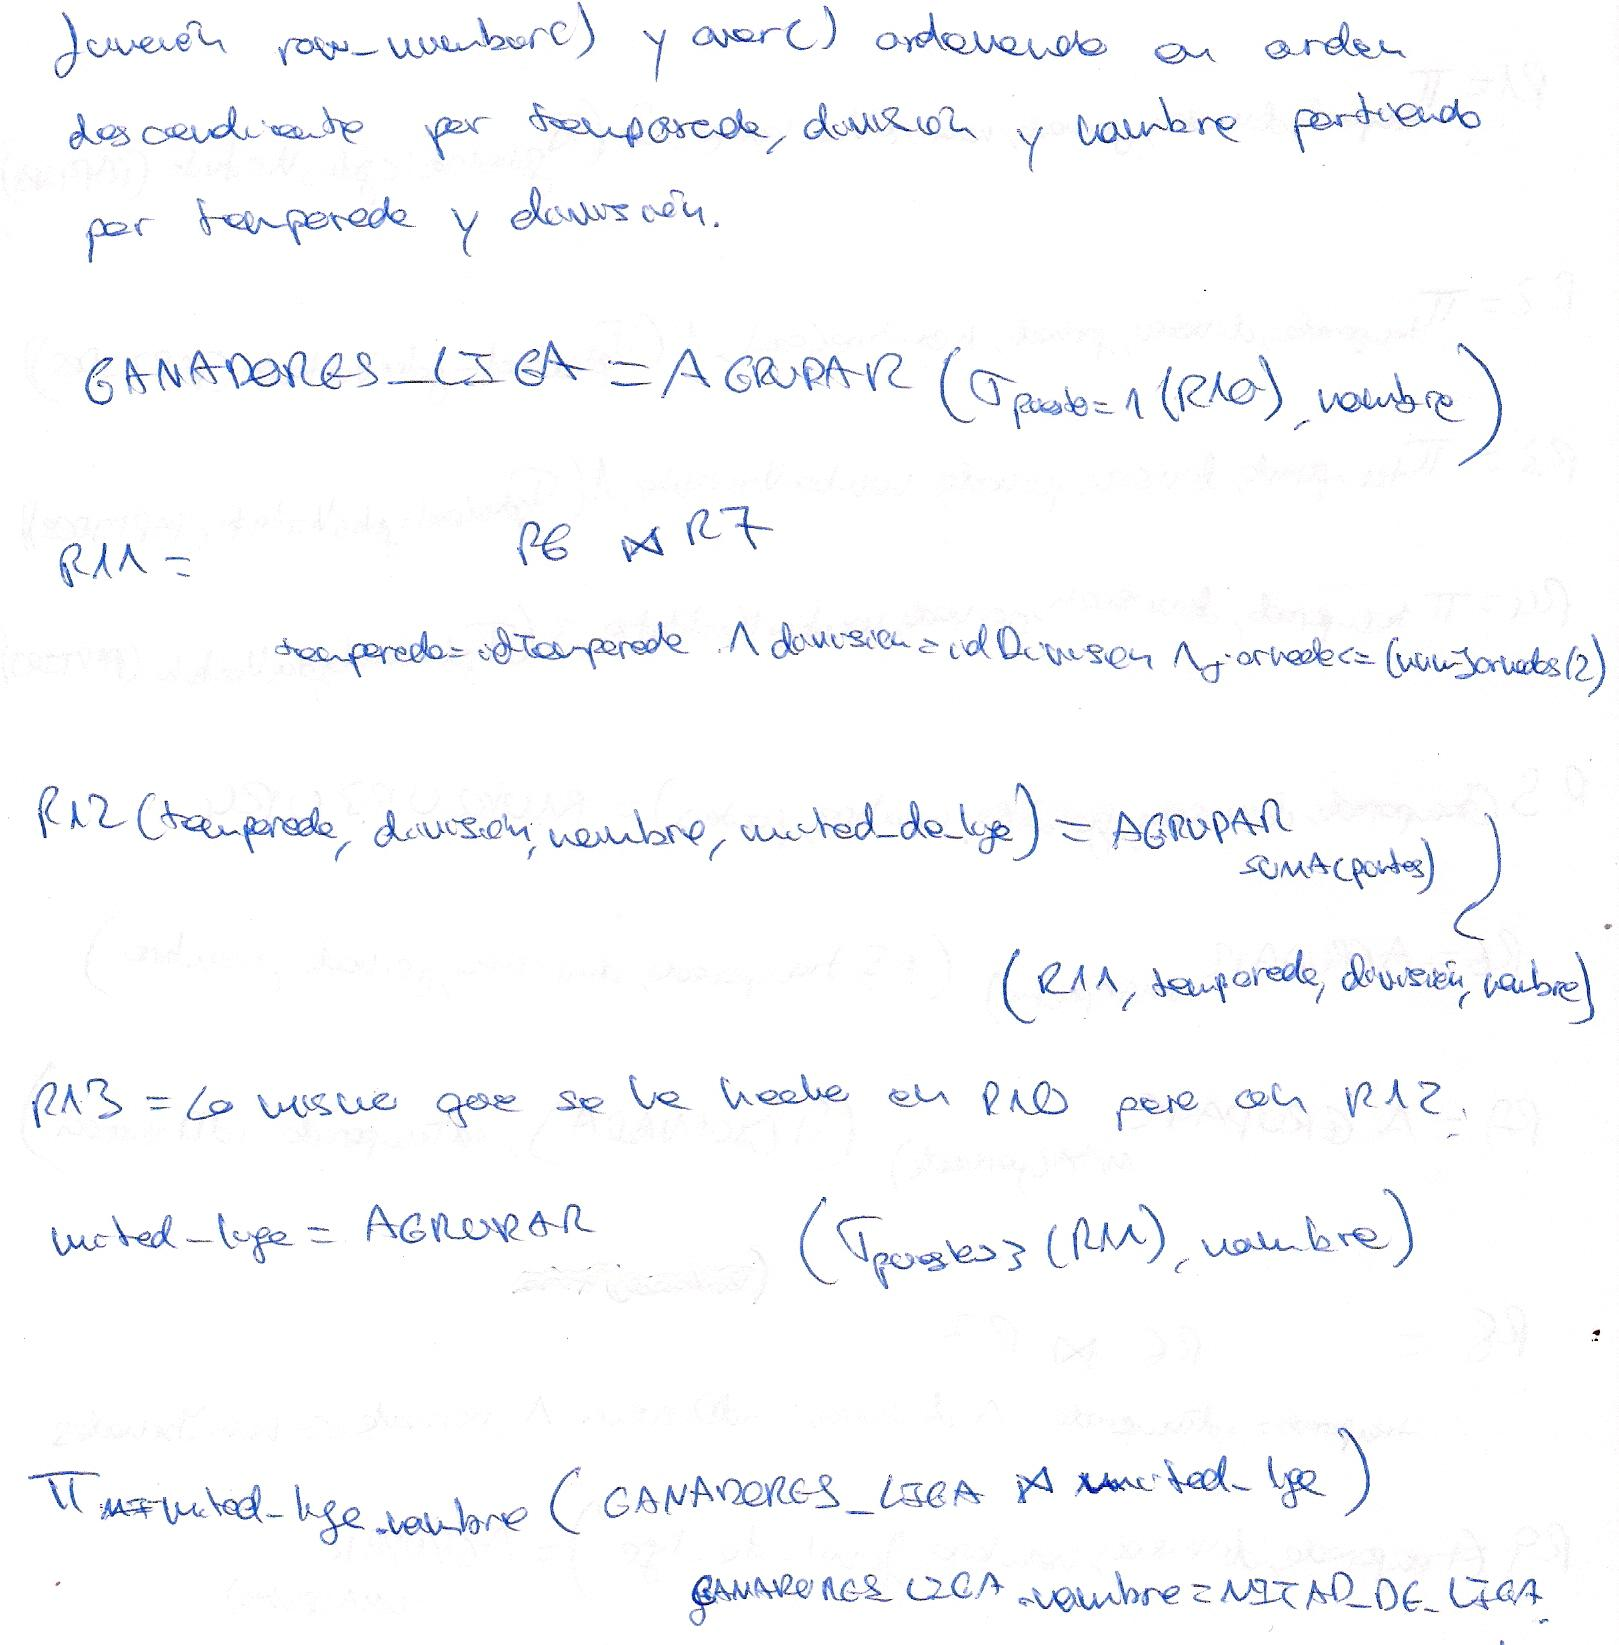 función row_number() y over() ordenando en orden
descendiente por temporada, división y nombre partiendo
por temporada y división.
GANADORES_LIGA = AGRUPAR (σ puesto=1 (R10), nombre)
R11 = R6 ⋈ R7
temporada=idTemporada ∧ division=idDivision ∧ jornada<=(numJornadas/2)
R12 (temporada, división, nombre, mitad_de_liga) = AGRUPAR
SUMA(puntos)
(R11, temporada, división, nombre)
R13 = Lo mismo que se ha hecho en R10 pero con R12.
mitad_liga = AGRUPAR (σ puesto>3 (R11), nombre)
π mitad_liga.nombre (GANADORES_LIGA ⋈ mitad_liga)
GANADORES LIGA.nombre=MITAD_DE_LIGA.